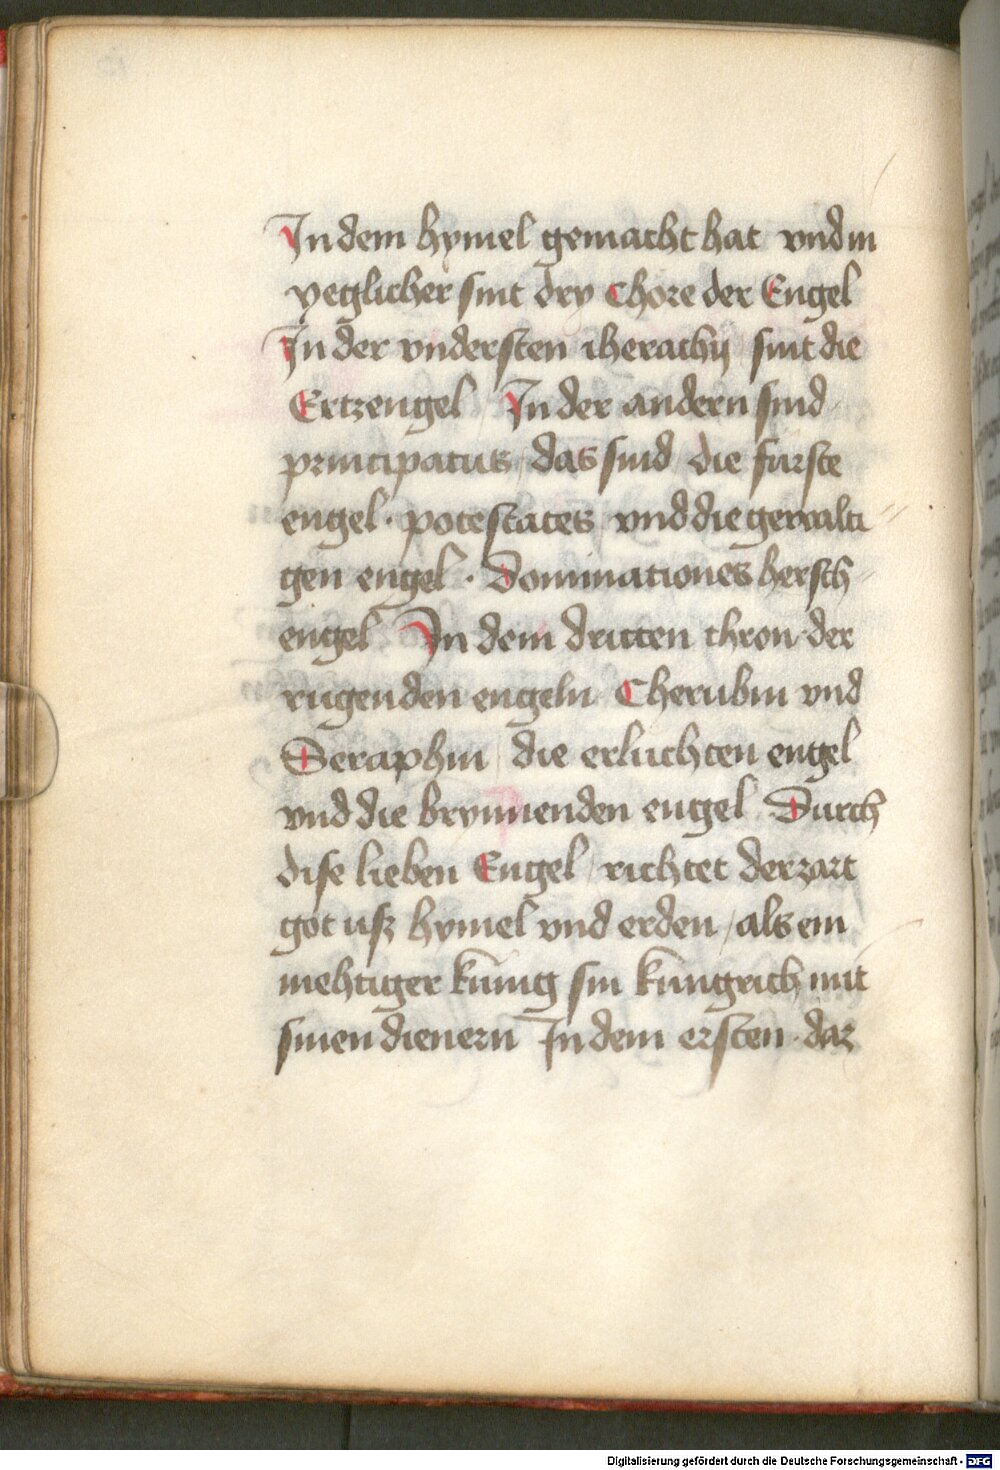 In dem hymel gemacht hat vnd in
yeglicher sint dry Chore der Engel
In der vndersten iherachij sint die
Ertzengel / In der andern sind
principatus / das sind die fürste
engel · potestates vnd die gewalti〃
gen engel · Dominationes hersch〃
engel In dem dritten thron der
rügenden engeln Cherubin vnd
Seraphin / die erluchten engel
vnd die brynnenden engel Durch
dise lieben Engel / richtet der zart
got usz hymel vnd erden / als ein
mehtiger künig sin küngrich mit
sinen dienern In dem ersten dar
Digitalisierung gefördert durch die Deutsche Forschungsgemeinschaft - DFG